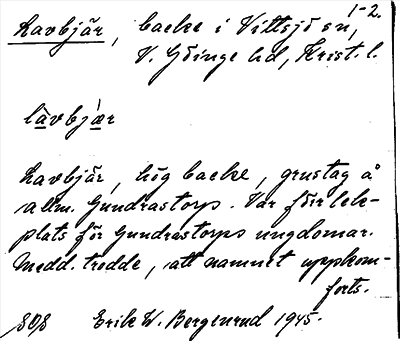 1-2.
Lavbjär, backe i Vittsjö sn,
V. Göinge hd, Krist. l.
lavbjær
Lavbjär, hög backe, grustag å
allm. Gundrastorp. Var förr lek-
plats för Gundrastorps ungdomar.
Medd. trodde, att namnet uppkom-
forts.
Erik W. Bergenrud 1945.